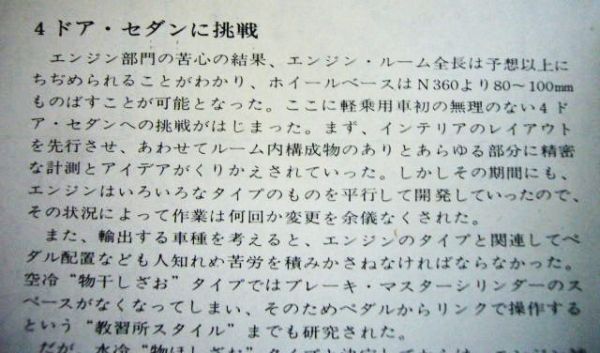 4ドア・セダンに挑戦
エンジン部門の苦心の結果、エンジン・ルーム全長は予想以上に
ちぢめられることがわかり、ホイールベースはN360より80～100mm
ものばすことが可能となった。ここに軽乗用車初の無理のない4ド
ア・セダンへの挑戦がはじまった。まず、インテリアのレイアウト
を先行させ、あわせてルーム内構成物のありとあらゆる部分に精密
な計測とアイデアがくりかえされていった。しかしその期間にも、
エンジンはいろいろなタイプのものを平行して開発していったので、
その状況によって作業は何回か変更を余儀なくされた。
また、輸出する車種を考えると、エンジンのタイプと関連してペ
ダル配置なども人知れぬ苦労を積みかさねなければならなかった。
空冷“物干しざお”タイプではブレーキ・マスターシリンダーのス
ペースがなくなってしまい、そのためペダルからリンクで操作する
という“教習所スタイル”までも研究された。
だが、水冷“物ほしざお”タイプと決定してからは、エンジン